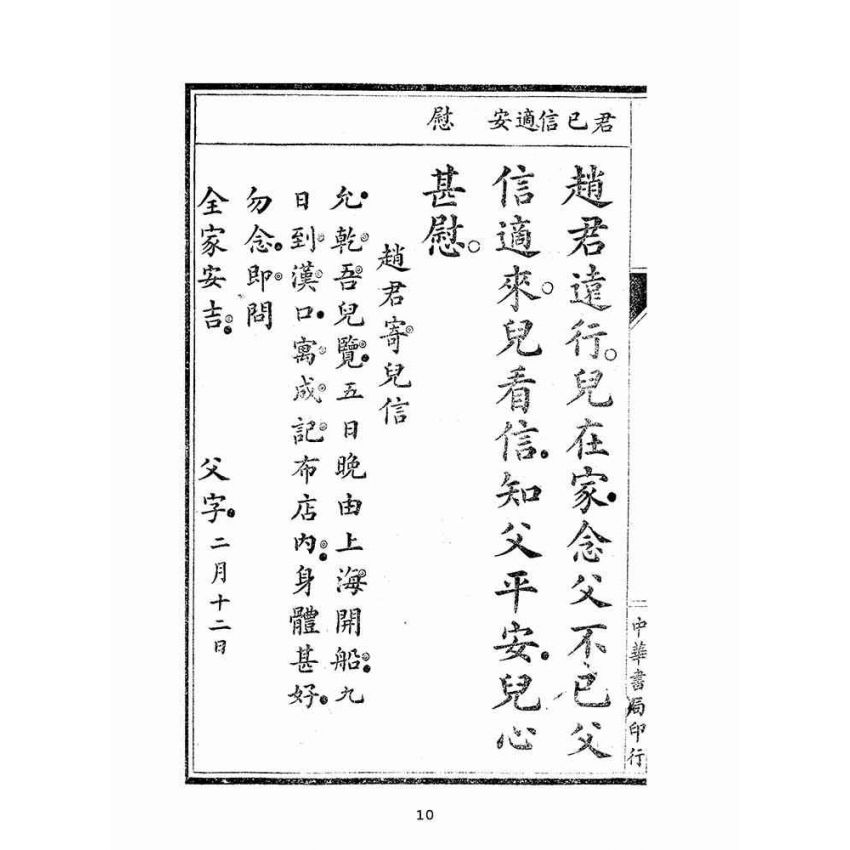 君已信適安 慰
趙君遠行。兒在家念父不已父
信適來。兒看信知父平安兒心
甚慰。
趙君寄兒信
允乾吾兒覽五日晚由上海開船九
日到漢口寓成記布店內身體甚好
勿念即問
全家安吉 父字 二月十二日
中華書局印行
10